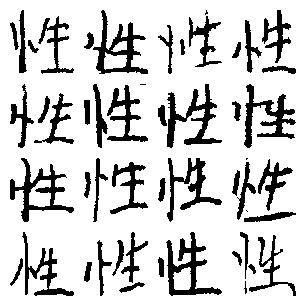 性性性性
性性性性
性性性性
性性性性